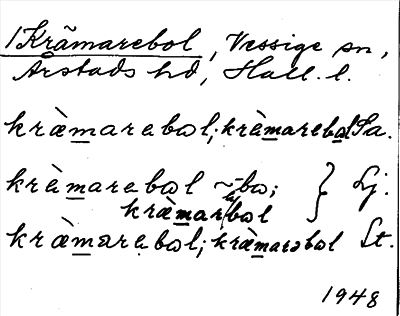 1 Krämarebol, Vessige sn,
Årstads hd, Hall. l.
kræ̀marebωl; krè̀marebωl Sa.
krèmarebωl ~-bω; } Lj.
kræ̀marbωl
kræ̀marebωl; kræ̀marəbωl St.
1948